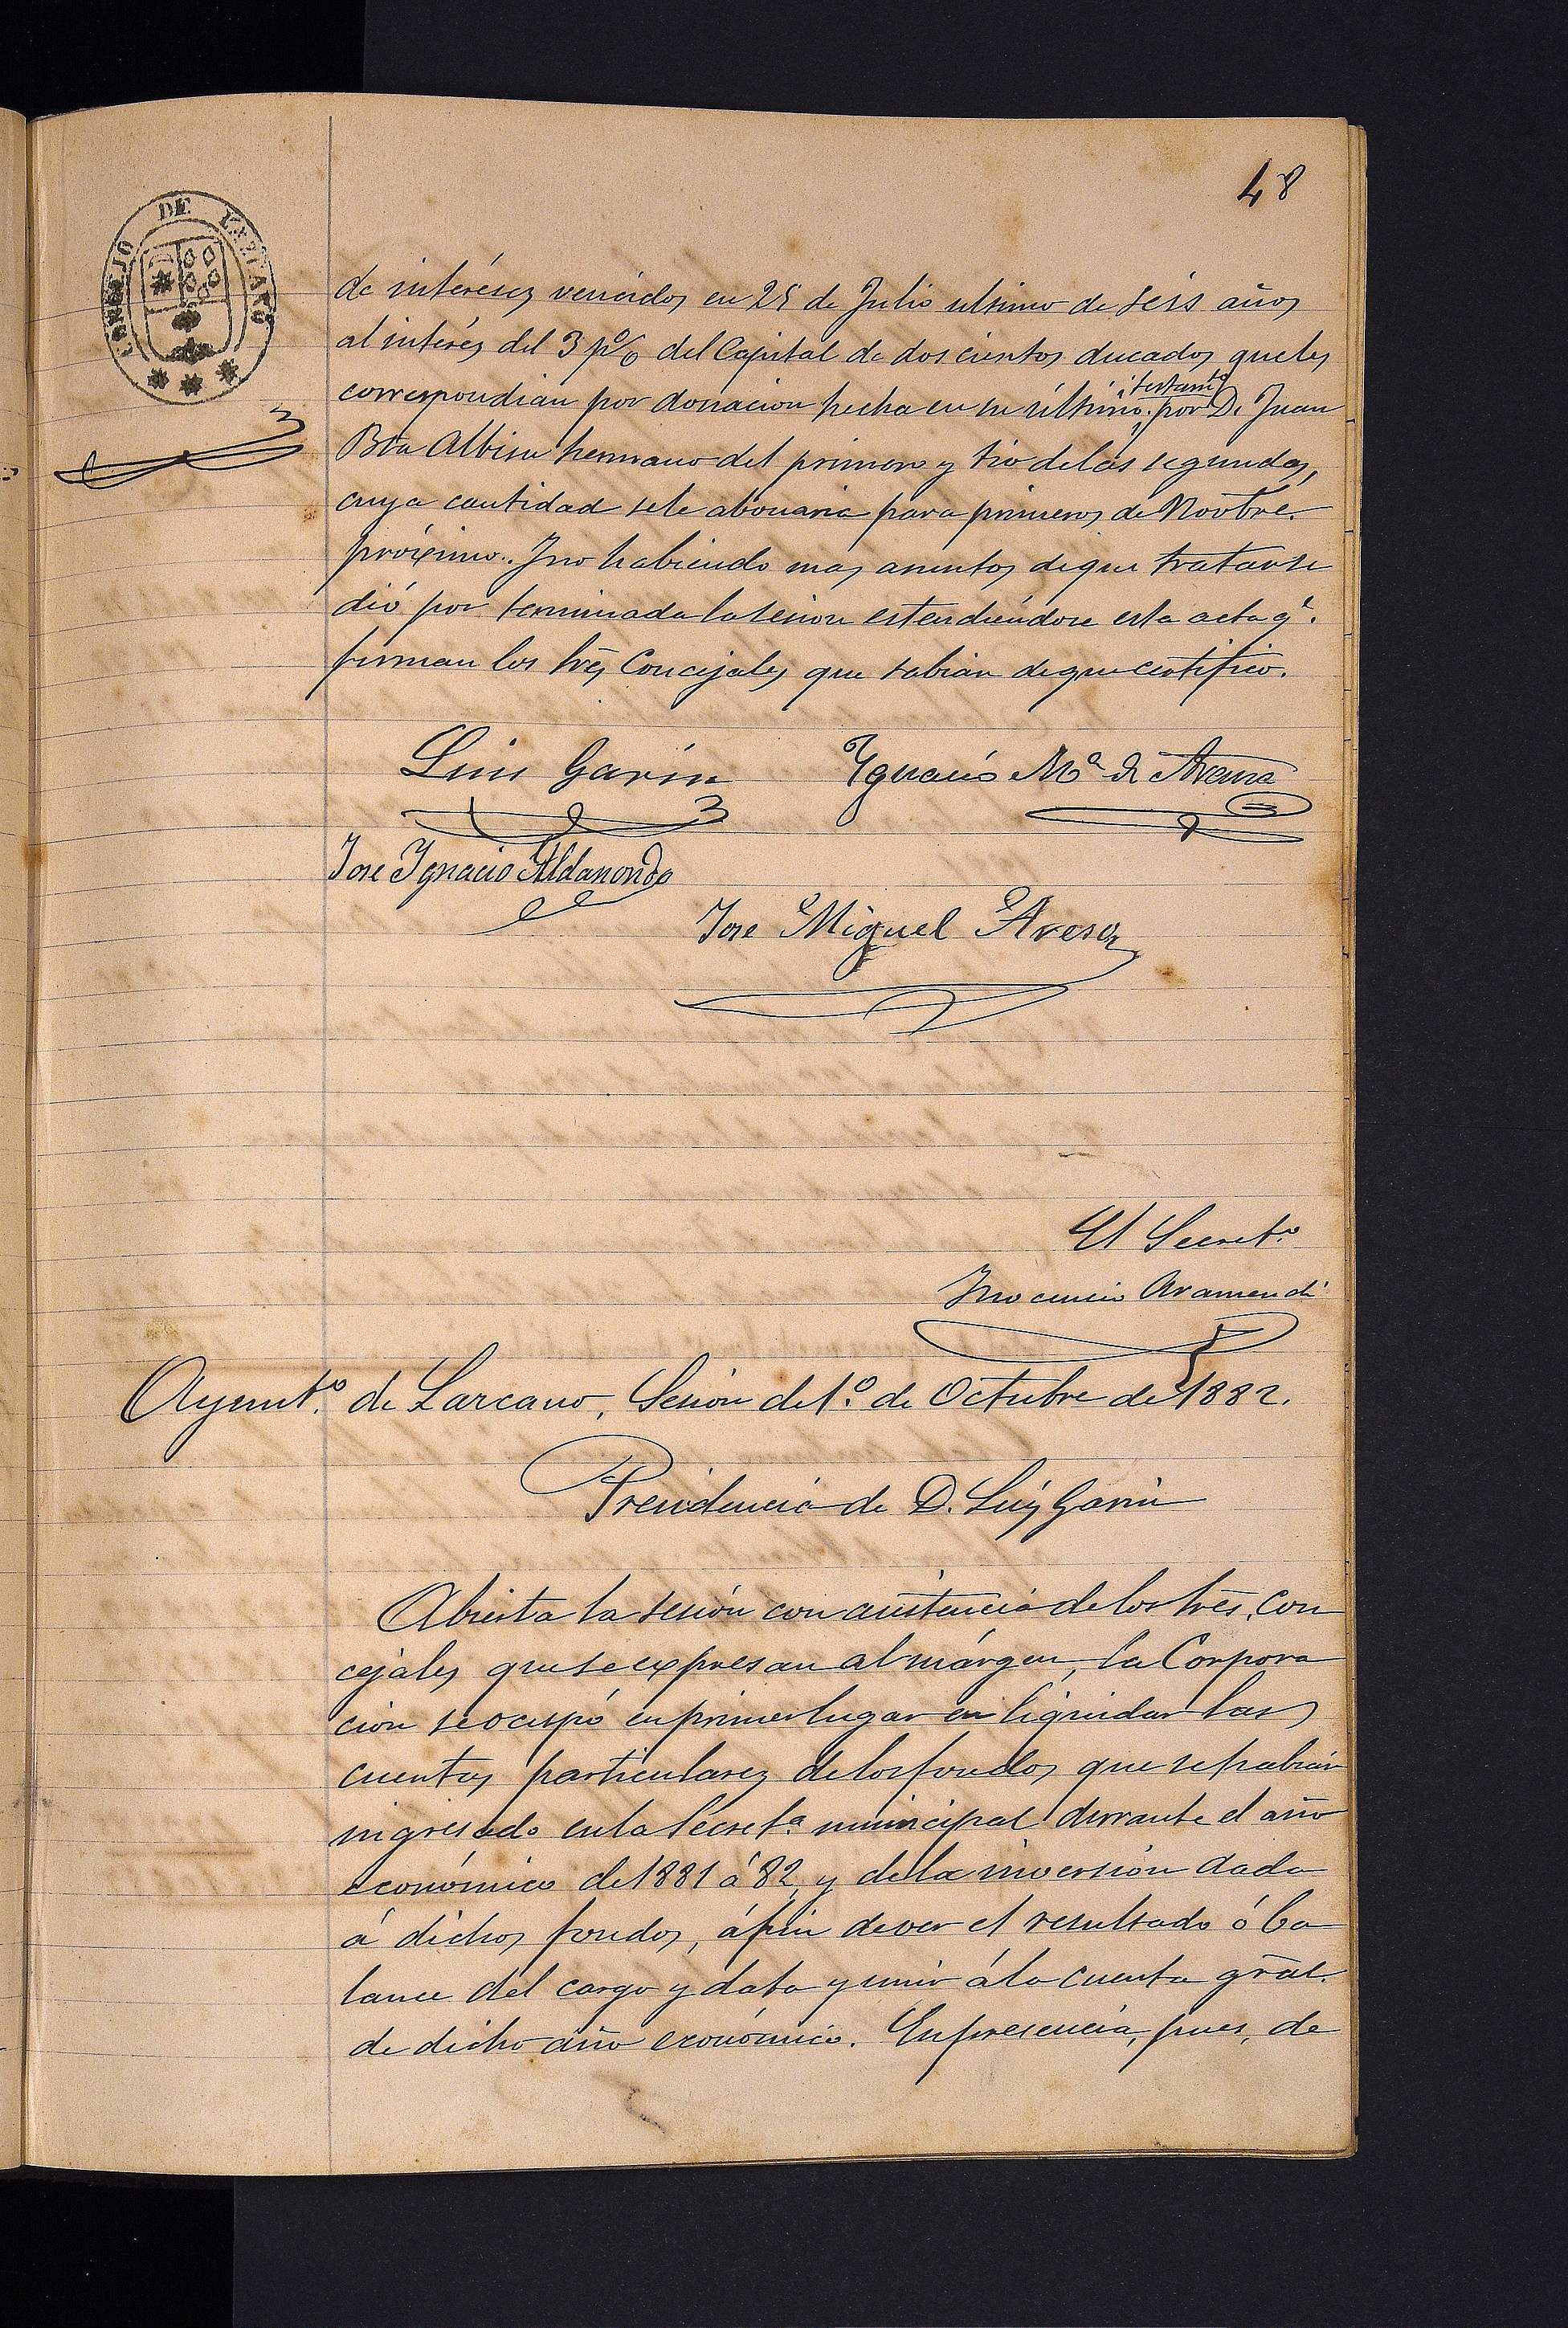 48
CONCEJO DE LAZCANO
de interéses vencidos en 25 de Julio ultimo de seis años
al interés del 3 p% del Capital de doscientos ducados que les
correspondian por donacion hecha en su último testamto por D. Juan
Bta Albisu hermano del primero y tio de las segundas,
cuya cantidad se le abonaria para primeros de Novbre.
próximo. Y no habiendo mas asuntos de que tratar se
dió por terminada la sesion estendiéndose esta acta qe.
firman los Sres Concejales que sabian de que certifico.
Luis Garin Ygnacio Ma de
Jose Ygnacio Aldanondo
Jose Miguel Areso
El Secreto
Ynocencio Aramendi
Ayunto. de Lazcano, Sesion del 1o. de Octubre de 1882.
Presidencia de D. Luis Garin
Abierta la sesión con asistencia de los Sres. Con
cejales que se expresan al márgen, la Corpora
cion se ocupó en primer lugar en liquidar las
cuentas particulares de los fondos que se habian
ingresado en la Secreta. municipal durante el año
económico de 1881 á 82, y de la inversión dada
á dichos fondos, á fin de ver el resultado ó ba
lance del cargo y data y unir á la cuenta gral.
de dicho año económico. En presencia, pues, de